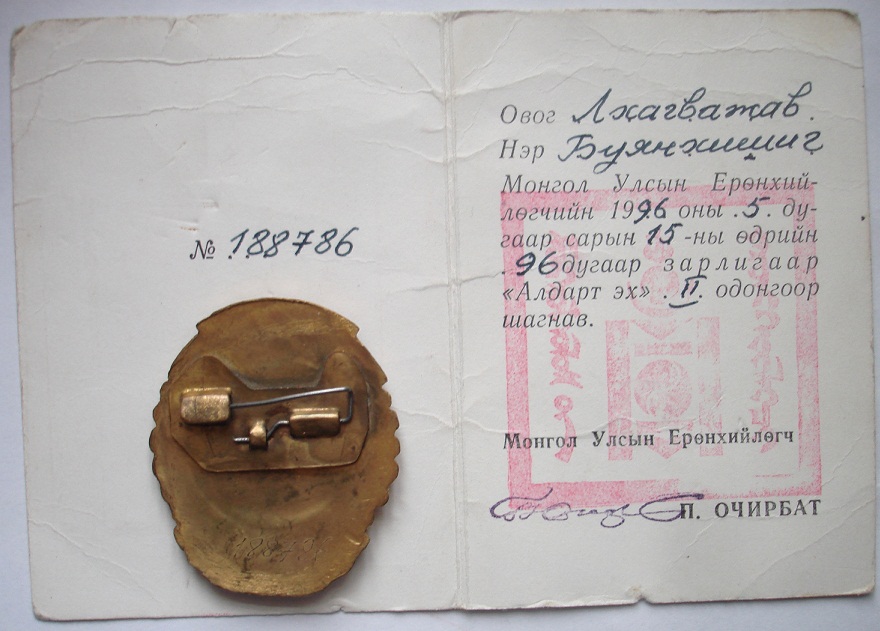 № 188786
Овог Лхагважав.
Нэр Буянхишиг
Монгол Улсын Ерөнхий-
лөгчийн 1996 оны .5. ду-
гаар сарын 15-ны өдрийн
.96 дугаар зарлигаар
«Алдарт эх» .II. одонгоор
шагнав.
Монгол Улсын Ерөнхийлөгч
П. ОЧИРБАТ